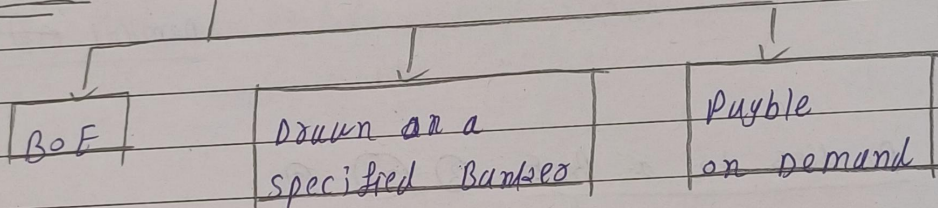 BOE
Drawn on a
specified Banker
Payble
on Demand